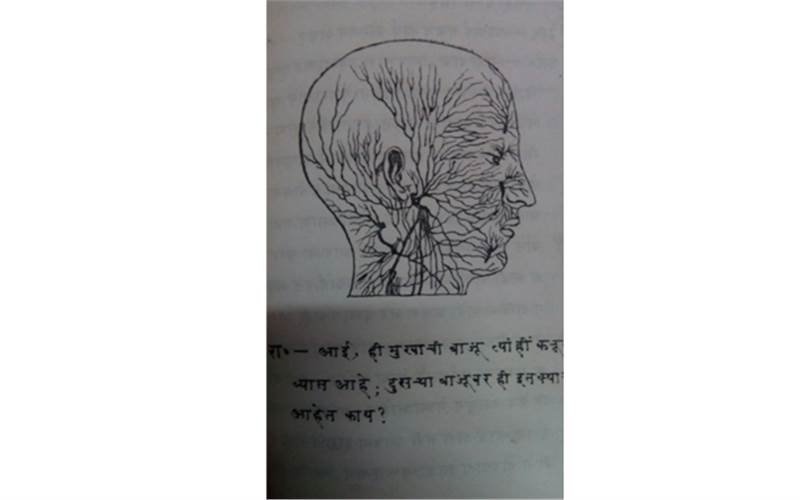 रा॰— आई, ही मुखाची बाजू त्यांहीं करून
व्याप्त आहे; दुसऱ्या बाजूवर ही इतक्याच
आहेत काय?